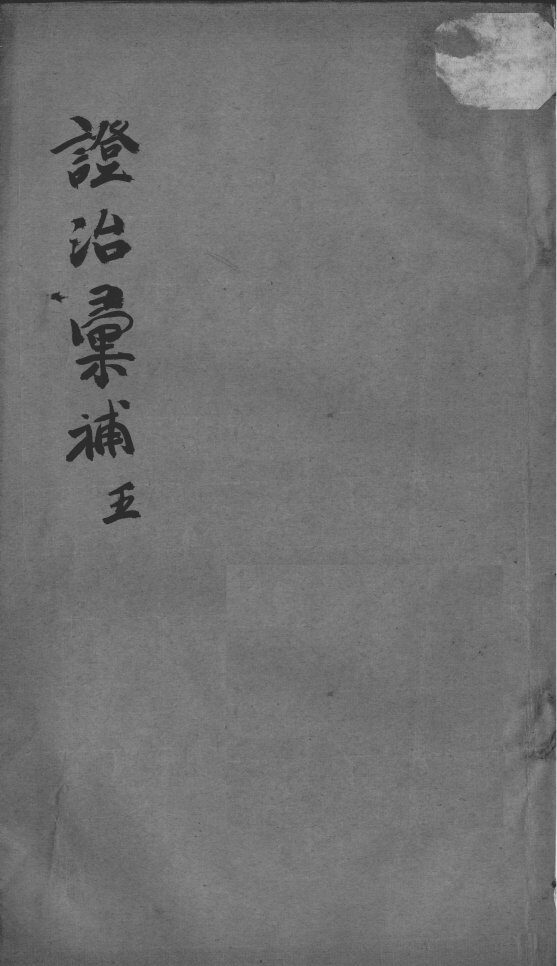 證治彙補 五